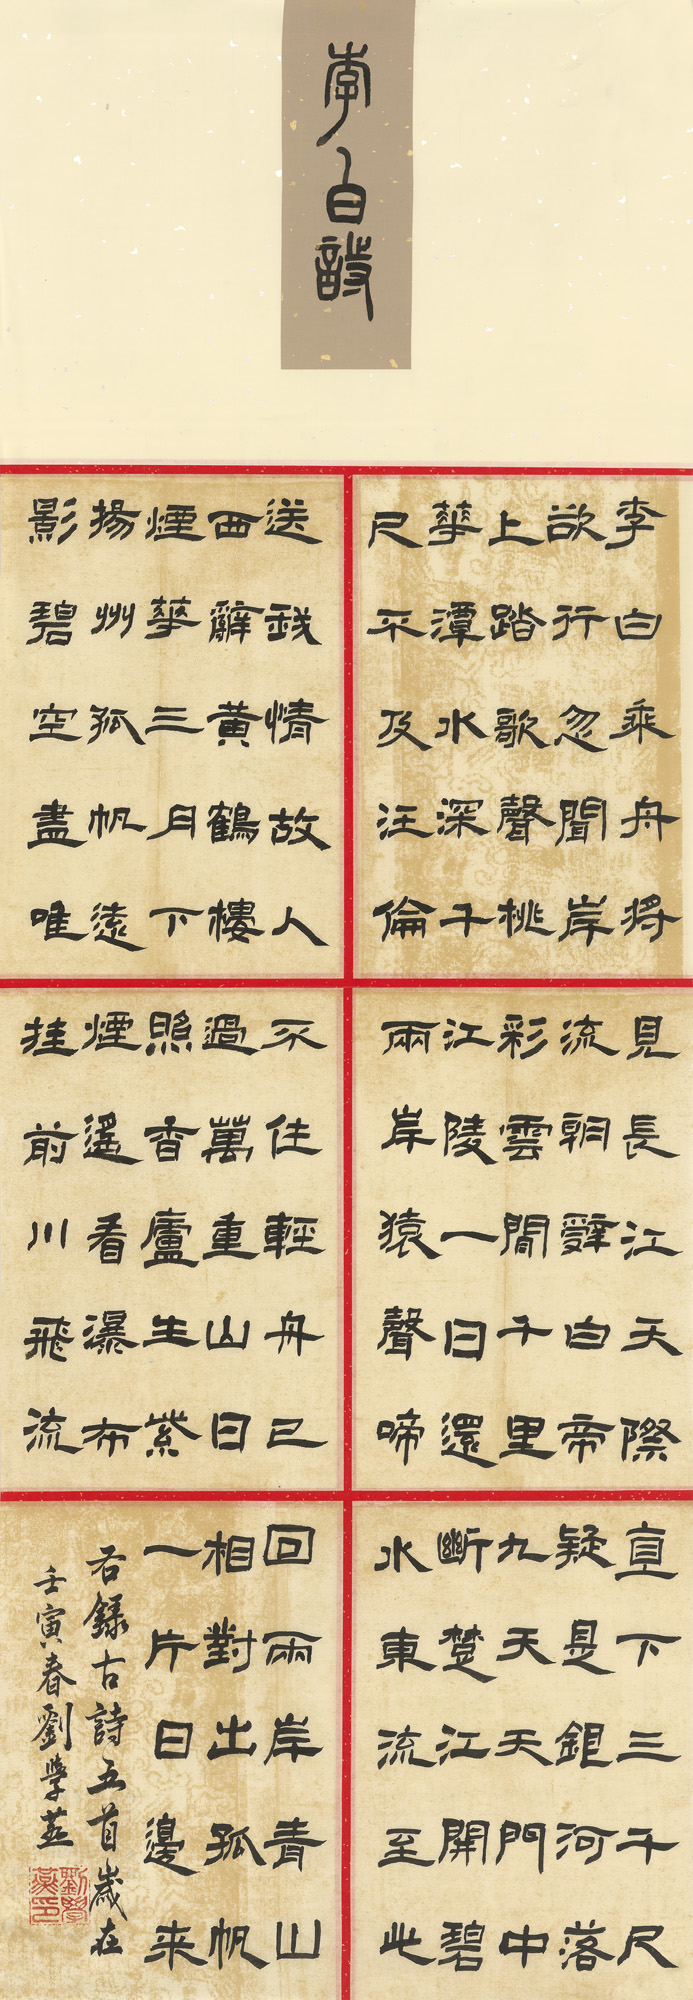 李白詩
李白乘舟將
欲行忽聞岸
上踏歌聲桃
華潭水深千
尺不及汪倫
送我情故人
西辭黃鶴樓
煙華三月下
揚州孤帆遠
影碧空盡唯
見長江天際
流朝辭白帝
彩雲閒千里
江陵一日還
兩岸猿聲啼
不住輕舟已
過萬重山日
照香廬生紫
煙遙看瀑布
挂前川飛流
直下三千尺
疑是銀河落
九天天門中
斷楚江開碧
水東流至此
回兩岸青山
相對出孤帆
一片日邊來
右錄古詩五首歲在
壬寅春劉學